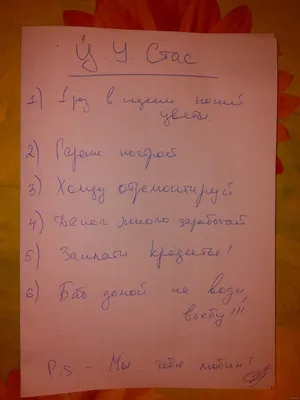 Ц. У. Стас
1) 1 раз в неделю полей
цветы.
2) Гараж построй
3) Хонду отремонтируй
4) Денег много заработай
5) Заплати кредиты!
6) Баб домой не води,
выебу!!!
P.S - Мы тебя любим!